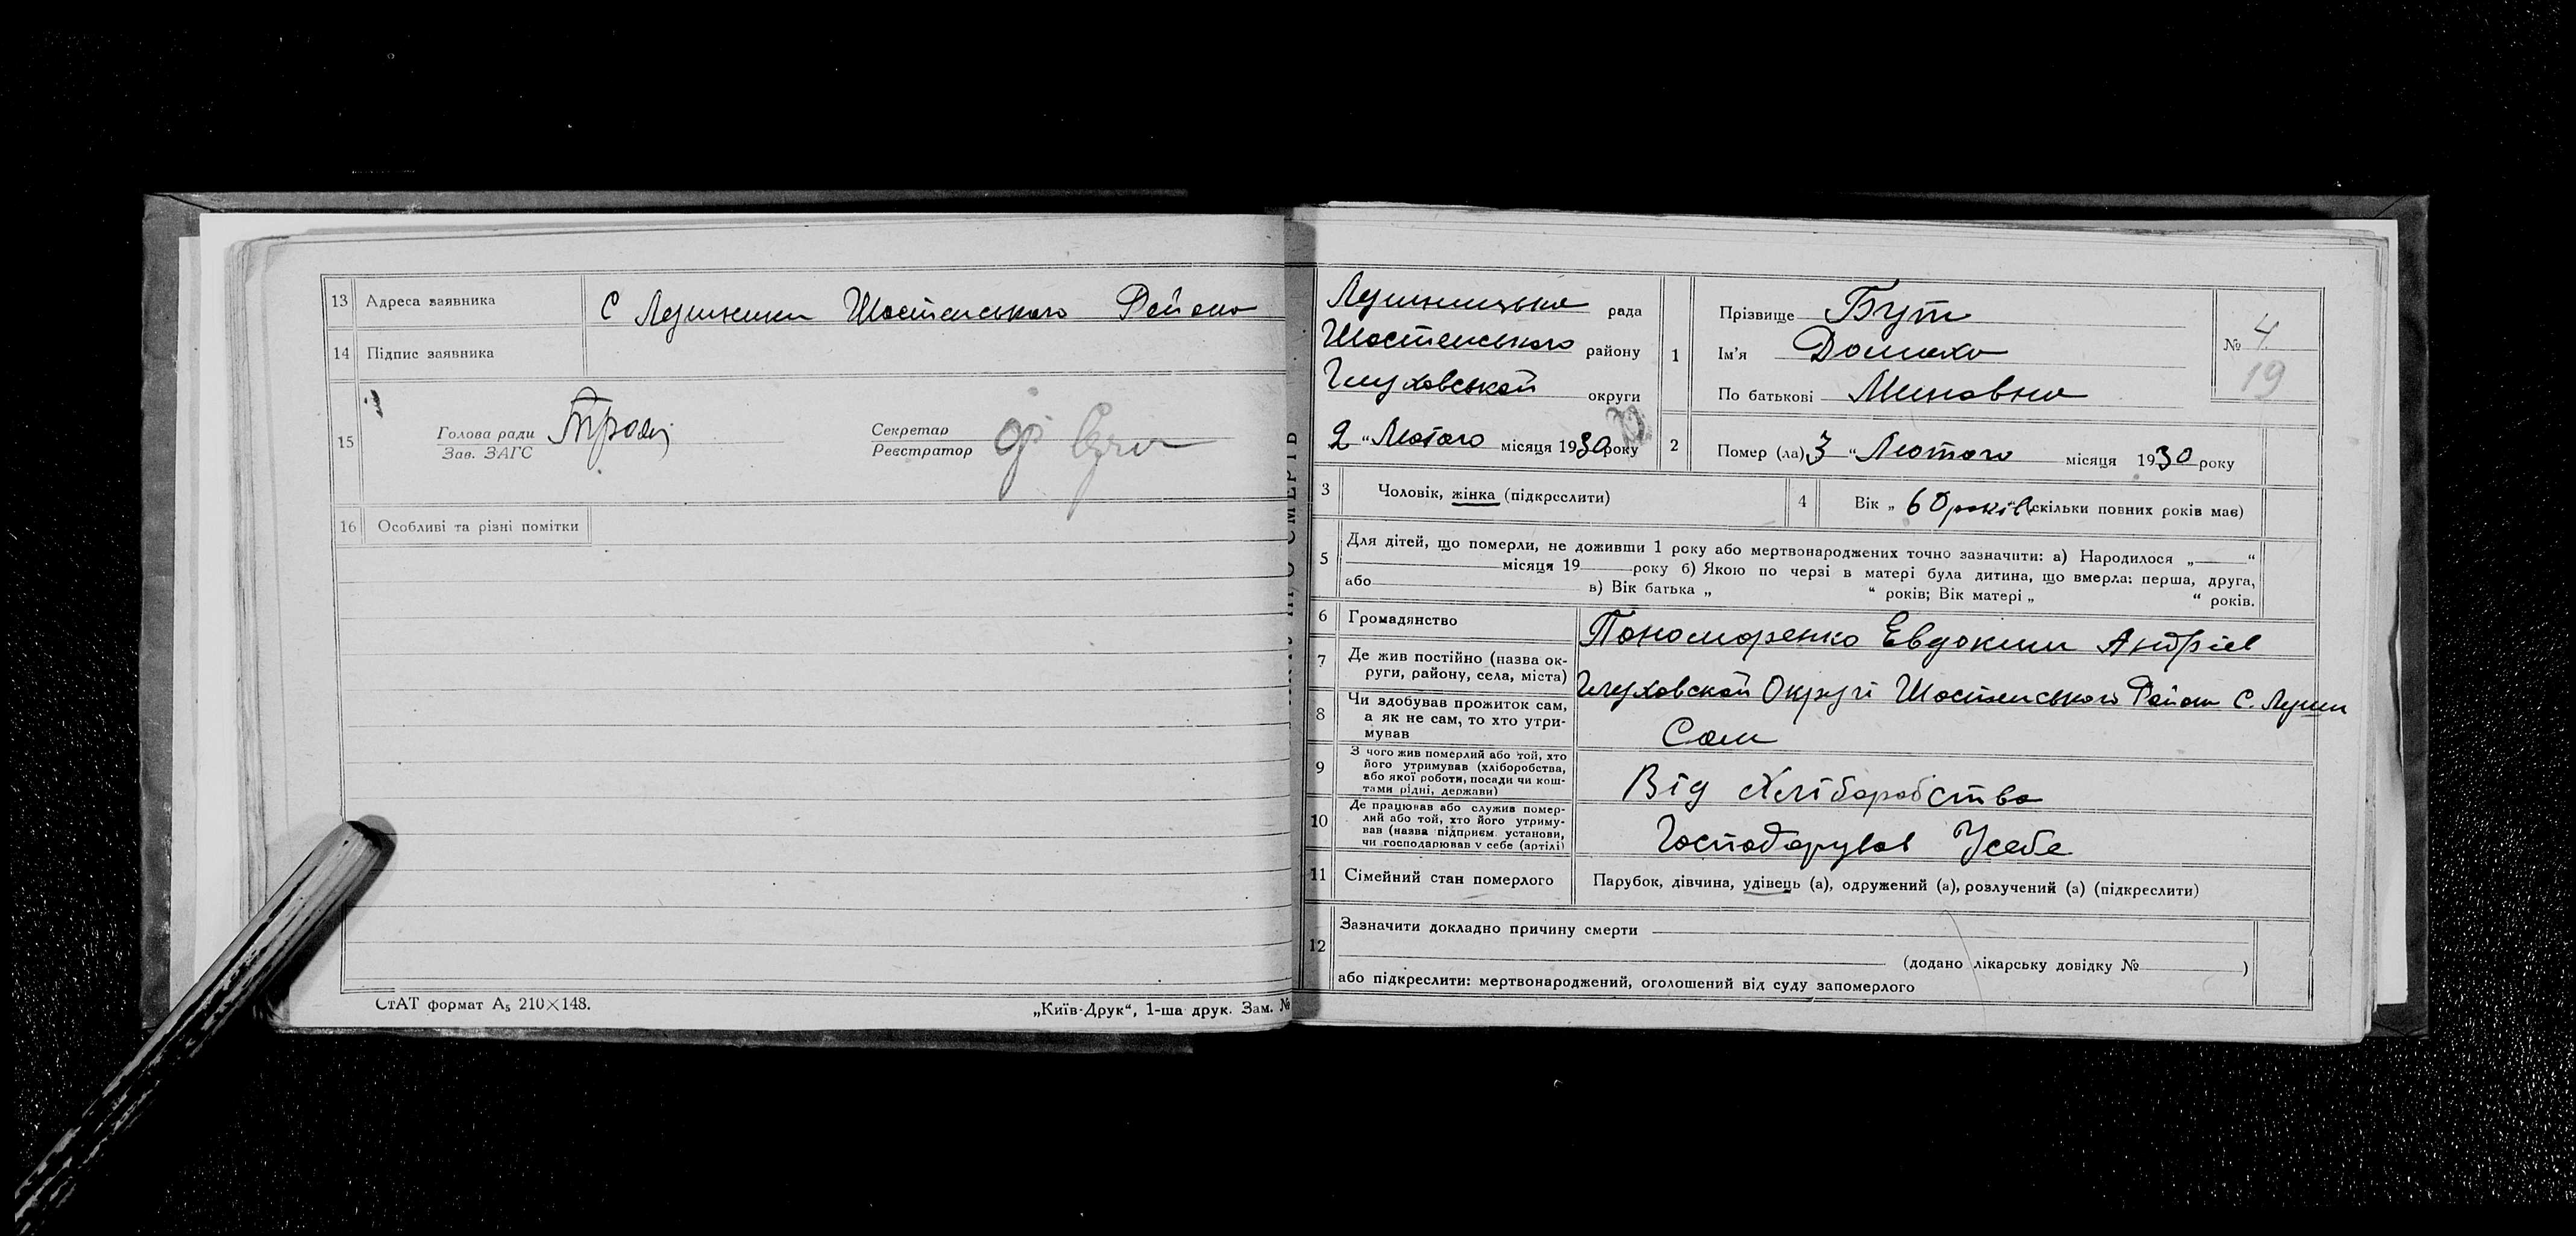 13 Адреса заявника С Лушники Шостенського Району
14 Підпис заявника
15
Голова ради
Зав. ЗАГС
Секретар
Реєстратор
16 Особливі та різні помітки
СтАТ формат А₅ 210×148.
„Київ-Друк“, 1-ша друк. Зам. №
Лушницька рада
Шостенського району
Глуховської округи
2 “ Лютого місяця 1930 року
1
Прізвище Бут
Ім’я Домаха
По батькові Миновна
№ 4
19
2 Помер (ла) 3 “ Лютого місяця 1930 року
3 Чоловік, жінка (підкреслити)
4 Вік „ 60 років скільки повних років має)
5 Для дітей, що померли, не доживши 1 року або мертвонароджених точно зазначити: а) Народилося „ “
місяця 19 року б) Якою по черзі в матері була дитина, що вмерла: перша, друга,
або в) Вік батька „ “ років; Вік матері „ “ років.
6 Громадянство Пономоренко Евдоким Андрієв
7 Де жив постійно (назва ок-
руги, району, села, міста) Глуховской Округі Шостенського Району С. Лушн
8 Чи здобував прожиток сам,
а як не сам, то хто утри-
мував Сам
9 З чого жив померлий або той, хто
його утримував (хліборобства,
або якої роботи, посади чи кош-
тами рідні, держави) Від Хліборобства
10 Де працював або служив помер-
лий або той, хто його утриму-
вав (назва підприєм. установи,
чи господарював у себе (артілі) Господорував Усебе
11 Сімейний стан померлого Парубок, дівчина, удівець (а), одружений (а), розлучений (а) (підкреслити)
12 Зазначити докладно причину смерти
(додано лікарську довідку № )
або підкреслити: мертвонароджений, оголошений від суду запомерлого